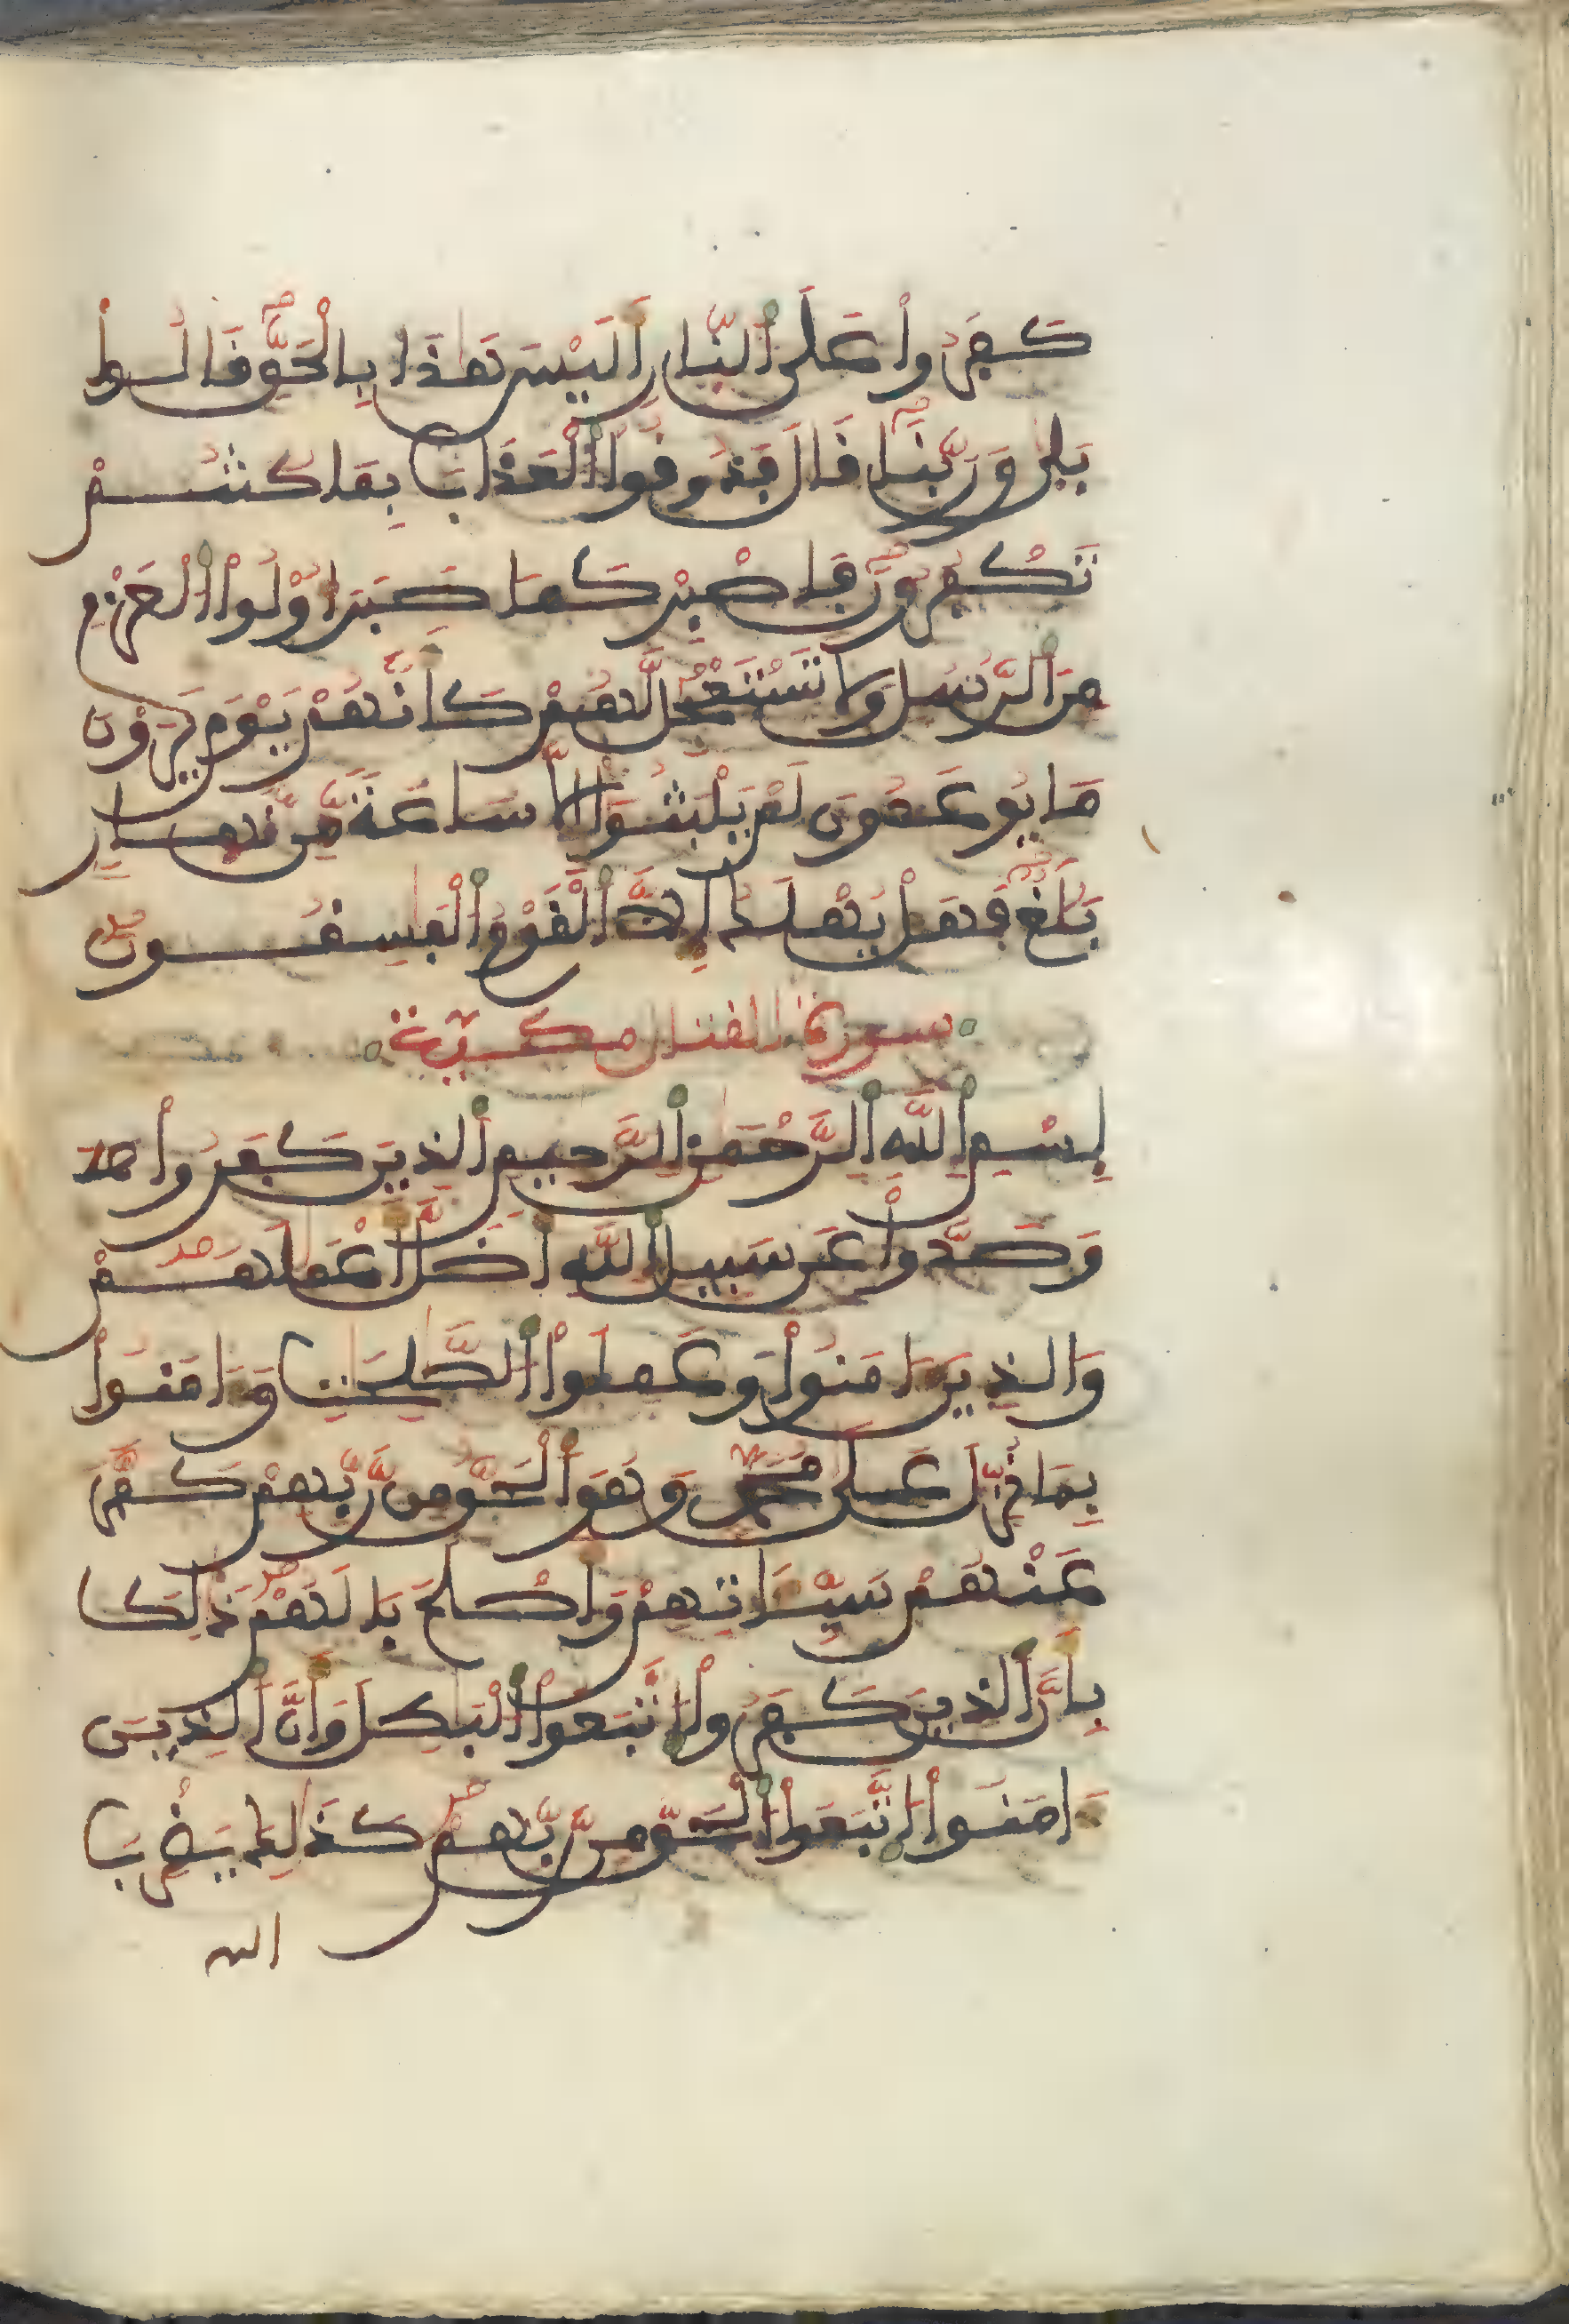 كَفَرُوا۟ عَلَى اَ۬لنّ۪ارِ أَلَيْسَ هَٰذَا بِالْحَقِّ قَالُوا۟
بَل۪ىٰ وَرَبِّنَا قَالَ فَذُوقُوا۟ اُ۬لْعَذَابَ بِمَا كُنتُمْ
تَكْفُرُونَ فَاصْبِرْ كَمَا صَبَرَ أُو۟لُوا۟ اُ۬لْعَزْمِ
مِنَ اَ۬لرُّسُلِ وَلَا تَسْتَعْجِل لَّهُمْ كَأَنَّهُمْ يَوْمَ يَرَوْنَ
مَا يُوعَدُونَ لَمْ يَلْبَثُوٓا۟ إِلَّا سَاعَةً مِّن نَّه۪ارِۢ
بَلَٰغٌ فَهَلْ يُهْلَكُ إِلَّا اَ۬لْقَوْمُ اُ۬لْفَٰسِقُونَ
سورة القتال مكية
بِسْمِ اِ۬للَّهِ اِ۬لرَّحْمَٰنِ اِ۬لرَّحِيمِ اِ۬لذِينَ كَفَرُوا۟
وَصَدُّوا۟ عَن سَبِيلِ اِ۬للَّهِ أَضَلَّ أَعْمَٰلَهُمْ
وَالذِينَ ءَامَنُوا۟ وَعَمِلُوا۟ اُ۬لصَّٰلِحَٰتِ وَءَامَنُوا۟
بِمَا نُزِّلَ عَلَىٰ مُحَمَّدٍ وَهُوَ اَ۬لْحَقُّ مِن رَّبِّهِمْ كَفَّرَ
عَنْهُمْ سَيِّـَٔاتِهِمْ وَأَصْلَحَ بَالَهُمْ ذَٰلِكَ
بِأَنَّ اَ۬لذِينَ كَفَرُوا۟ اُ۪تَّبَعُوا۟ اُ۬لْبَٰطِلَ وَأَنَّ اَ۬لذِينَ
ءَامَنُوا۟ اُ۪تَّبَعُوا۟ اُ۬لْحَقَّ مِن رَّبِّهِمْ كَذَٰلِكَ يَضْرِبُ
الله